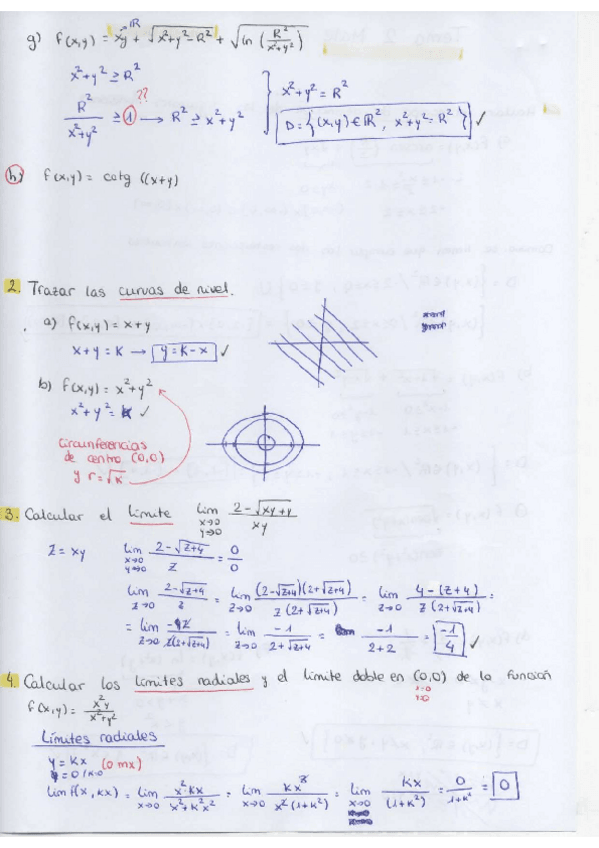 ℝ
g) f(x,y) = xy + √(x²+y²-R²) + √(ln (R²/(x²+y²)))
x²+y² ≥ R²
??
R²/(x²+y²) ≥ 1 → R² ≥ x²+y²
x²+y² = R²
D = {(x,y) ∈ ℝ², x²+y² = R²} ✓
h) f(x,y) = cotg ((x+y)
2. Trazar las curvas de nivel.
a) f(x,y) = x+y
x+y = K → y = K-x ✓
b) f(x,y) = x²+y²
x²+y² = K ✓
circunferencias
de centro (0,0)
y r = √K
3. Calcular el límite lim x→0 y→0 (2-√(xy+4))/(xy)
z = xy lim x→0 y→0 (2-√(z+4))/z = 0/0
lim z→0 (2-√(z+4))/z = lim z→0 ((2-√(z+4))(2+√(z+4)))/(z(2+√(z+4))) = lim z→0 (4-(z+4))/(z(2+√(z+4))) =
= lim z→0 -z/(z(2+√(z+4))) = lim z→0 -1/(2+√(z+4)) = -1/(2+2) = -1/4 ✓
4. Calcular los límites radiales y el límite doble en (0,0) de la función
f(x,y) = x²y/(x²+y²)
Límites radiales
y = Kx (o mx)
lim f(x,kx) = lim x→0 (x²·kx)/(x²+k²x²) = lim x→0 kx³/(x²(1+k²)) = lim x→0 kx/(1+k²) = 0/(1+k²) = 0